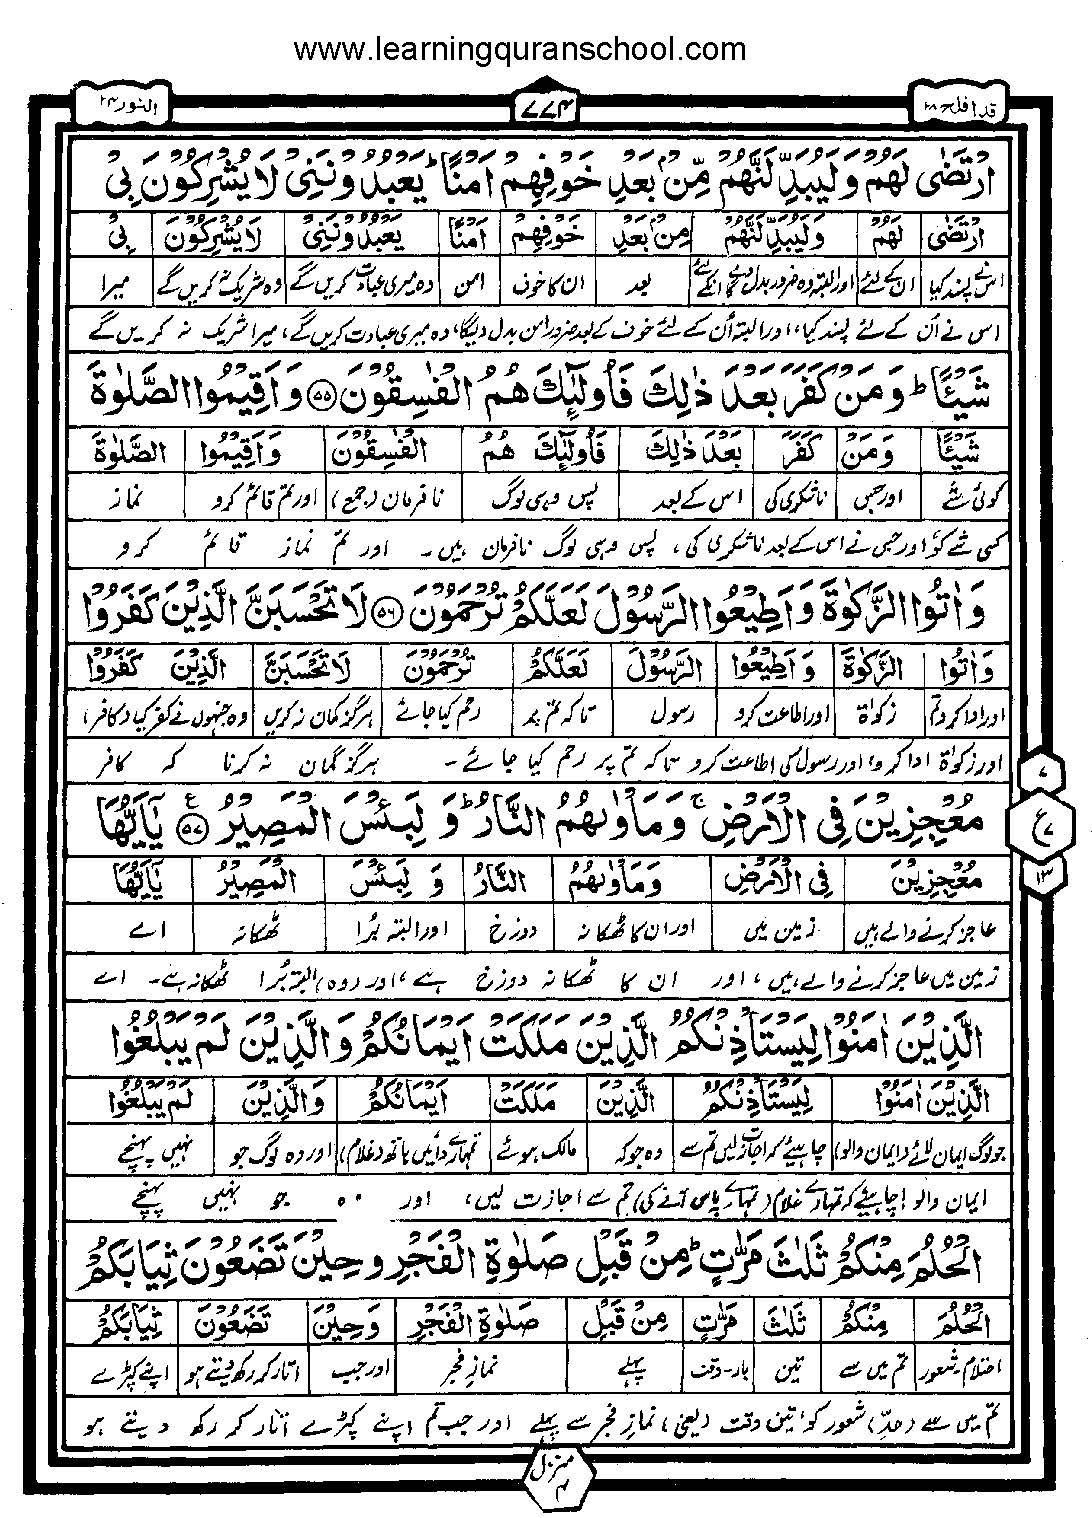 www.learningquranschool.com
النور ۲۴
۷۷۴
قد افلح ۱۸
ارْتَضٰى لَهُمْ وَلَيُبَدِّلَنَّهُمْ مِّنْۢ بَعْدِ خَوْفِهِمْ اَمْنًا ؕ يَعْبُدُوْنَنِيْ لَا يُشْرِكُوْنَ بِيْ
ارْتَضٰى لَهُمْ وَلَيُبَدِّلَنَّهُمْ مِّنْۢ بَعْدِ خَوْفِهِمْ اَمْنًا يَعْبُدُوْنَنِيْ لَا يُشْرِكُوْنَ بِيْ
اسنے پسند کیا ان کے لئے اور البتہ وہ ضرور بدل دے گا انکے لئے بعد ان کا خوف امن وہ میری عبادت کریں گے وہ شریک نہ کریں گے میرا
اس نے اُن کے لئے پسند کیا، اور البتہ اُن کے لئے خوف کے بعد ضرور امن بدل دیگا، وہ میری عبادت کریں گے، میرا شریک نہ کریں گے
شَيْئًا ؕ وَمَنْ كَفَرَ بَعْدَ ذٰلِكَ فَاُولٰٓئِكَ هُمُ الْفٰسِقُوْنَ ﴿۵۵﴾ وَاَقِيْمُوا الصَّلٰوةَ
شَيْئًا وَمَنْ كَفَرَ بَعْدَ ذٰلِكَ فَاُولٰٓئِكَ هُمُ الْفٰسِقُوْنَ وَاَقِيْمُوا الصَّلٰوةَ
کوئی شے اور جس ناشکری کی اس کے بعد پس وہی لوگ نافرمان (جمع) اور تم قائم کرو نماز
کسی شے کو، اور جس نے اس کے بعد ناشکری کی، پس وہی لوگ نافرمان ہیں۔ اور تم نماز قائم کرو
وَاٰتُوا الزَّكٰوةَ وَاَطِيْعُوا الرَّسُوْلَ لَعَلَّكُمْ تُرْحَمُوْنَ ﴿۵۶﴾ لَا تَحْسَبَنَّ الَّذِيْنَ كَفَرُوْا
وَاٰتُوا الزَّكٰوةَ وَاَطِيْعُوا الرَّسُوْلَ لَعَلَّكُمْ تُرْحَمُوْنَ لَا تَحْسَبَنَّ الَّذِيْنَ كَفَرُوْا
اور ادا کرو تم زکوٰۃ اور اطاعت کرو رسول تاکہ تم پر رحم کیا جائے ہرگز گمان نہ کریں وہ جنہوں نے کفر کیا (کافر)
اور زکوٰۃ ادا کرو، اور رسول کی اطاعت کرو تاکہ تم پر رحم کیا جائے۔ ہرگز گمان نہ کرنا کہ کافر
۷
ع۷
۱۳
مُعْجِزِيْنَ فِي الْاَرْضِ ۚ وَمَاْوٰىهُمُ النَّارُ ؕ وَلَبِئْسَ الْمَصِيْرُ ﴿۵۷﴾ يٰۤاَيُّهَا
مُعْجِزِيْنَ فِي الْاَرْضِ وَمَاْوٰىهُمُ النَّارُ وَلَبِئْسَ الْمَصِيْرُ يٰۤاَيُّهَا
عاجز کرنے والے ہیں زمین میں اور ان کا ٹھکانہ دوزخ اور البتہ بُرا ٹھکانہ اے
زمین میں عاجز کرنے والے ہیں، اور ان کا ٹھکانہ دوزخ ہے، اور (وہ) البتہ بُرا ٹھکانہ ہے۔ اے
الَّذِيْنَ اٰمَنُوْا لِيَسْتَاْذِنْكُمُ الَّذِيْنَ مَلَكَتْ اَيْمَانُكُمْ وَالَّذِيْنَ لَمْ يَبْلُغُوا
الَّذِيْنَ اٰمَنُوْا لِيَسْتَاْذِنْكُمُ الَّذِيْنَ مَلَكَتْ اَيْمَانُكُمْ وَالَّذِيْنَ لَمْ يَبْلُغُوا
جو لوگ ایمان لائے (ایمان والو) چاہیئے کہ اجازت لیں تم سے وہ جو کہ مالک ہوئے تمہارے دائیں ہاتھ (غلام) اور وہ لوگ جو نہیں پہنچے
ایمان والو! چاہیئے کہ تمہارے غلام (تمہارے پاس آنے کی) تم سے اجازت لیں، اور وہ جو نہیں پہنچے
الْحُلُمَ مِنْكُمْ ثَلٰثَ مَرّٰتٍ ؕ مِنْ قَبْلِ صَلٰوةِ الْفَجْرِ وَحِيْنَ تَضَعُوْنَ ثِيَابَكُمْ
الْحُلُمَ مِنْكُمْ ثَلٰثَ مَرّٰتٍ مِنْ قَبْلِ صَلٰوةِ الْفَجْرِ وَحِيْنَ تَضَعُوْنَ ثِيَابَكُمْ
احتلام۔شعور تم میں سے تین بار۔وقت پہلے نماز فجر اور جب اتار کر رکھ دیتے ہو اپنے کپڑے
تم میں سے (حدِّ) شعور کو، تین وقت (یعنی) نمازِ فجر سے پہلے اور جب تم اپنے کپڑے اتار کر رکھ دیتے ہو
منزل ۴